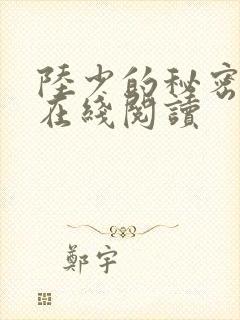 陸少的秘密
在綫閱讀
鄭宇